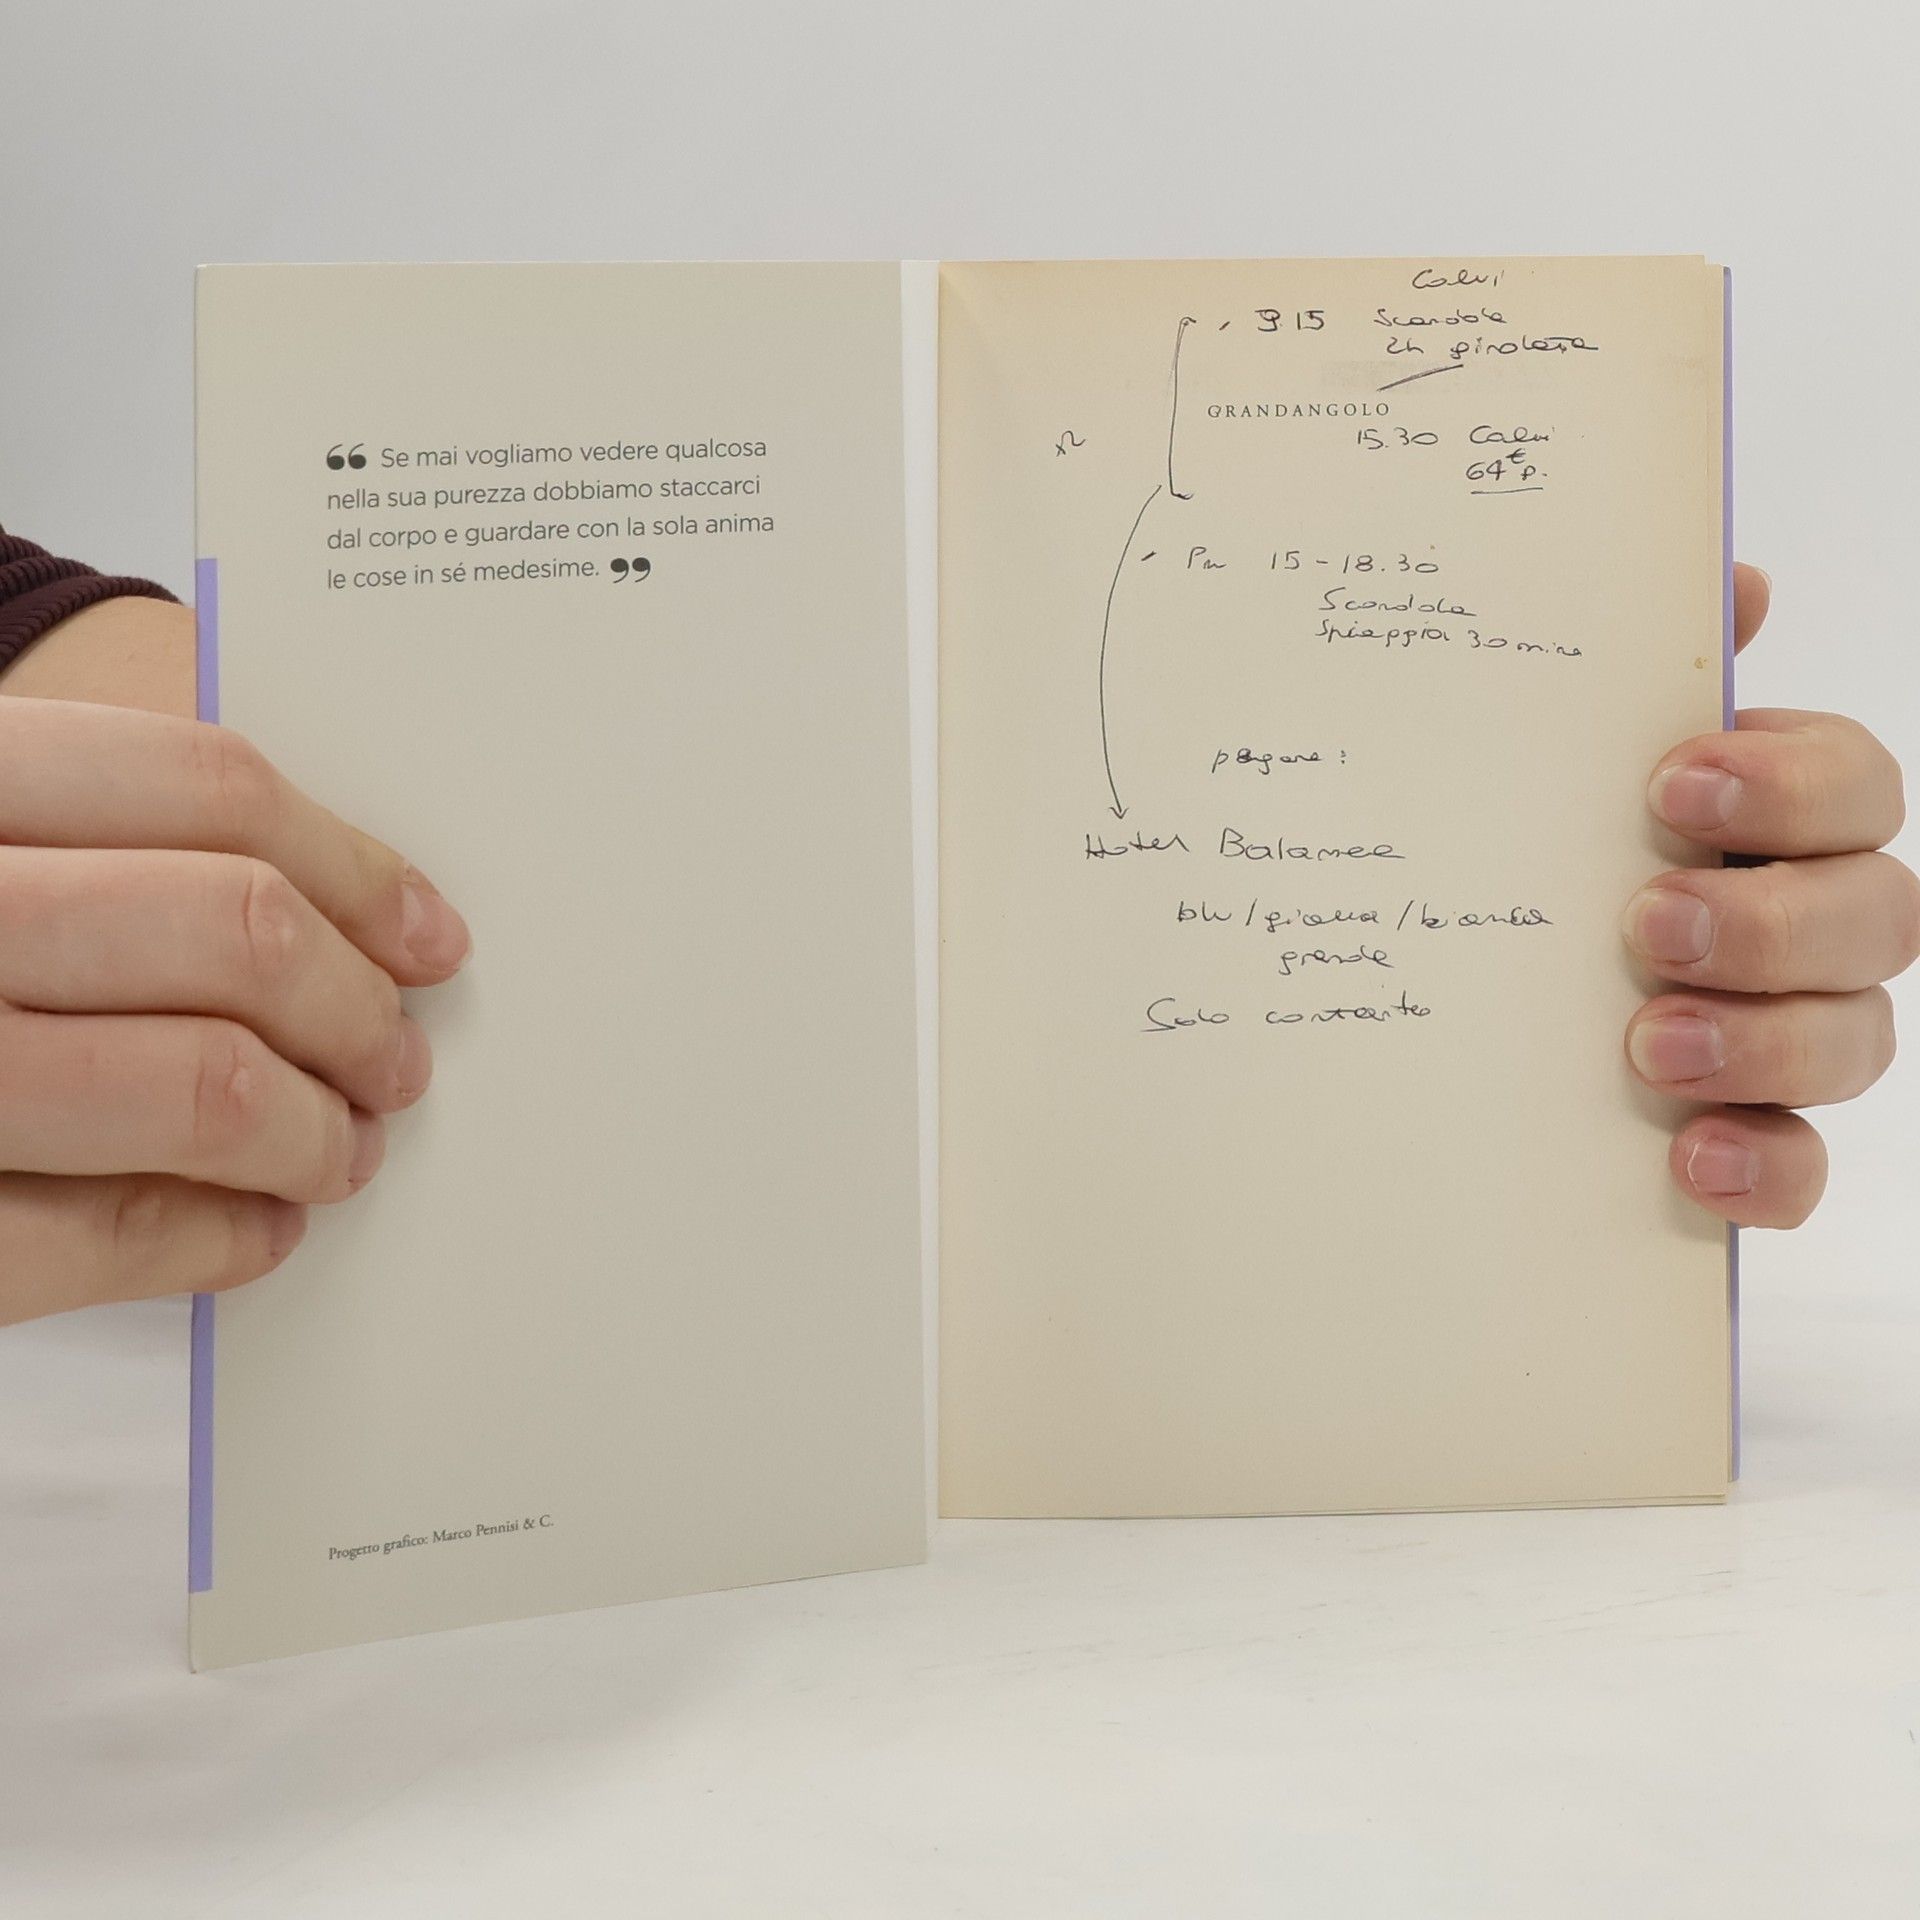 ❝ Se mai vogliamo vedere qualcosa
nella sua purezza dobbiamo staccarci
dal corpo e guardare con la sola anima
le cose in sé medesime. ❞
Progetto grafico: Marco Pennisi & C.
Calvi
- 9.15 Scandola
2h girolata
GRANDANGOLO
15.30 Calvi
64 € p.
- Pm 15-18.30
Scandola
Spiaggia 30 min
pagare:
Hotel Balanea
blu/gialla/bianca
grande
Solo contanti